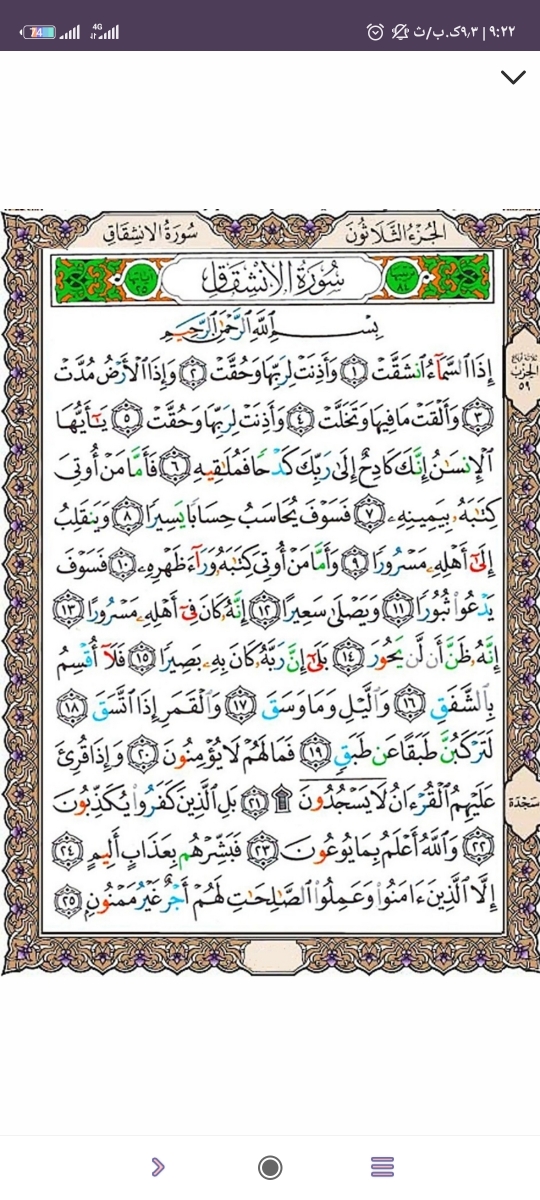 ٩:٢٢ | ٩٫٣ک.ب/ث
4G
74
سُورَةُ الانشِقَاقِ
الجُزءُ الثَّلَاثُونَ
سُورَةُ الِانْشِقَاقِ
بِسْمِ اللَّهِ الرَّحْمَٰنِ الرَّحِيمِ
إِذَا السَّمَآءُ انشَقَّتْ ١ وَأَذِنَتْ لِرَبِّهَا وَحُقَّتْ ٢ وَإِذَا الْأَرْضُ مُدَّتْ
٣ وَأَلْقَتْ مَا فِيهَا وَتَخَلَّتْ ٤ وَأَذِنَتْ لِرَبِّهَا وَحُقَّتْ ٥ يَٰٓأَيُّهَا
الْإِنسَٰنُ إِنَّكَ كَادِحٌ إِلَىٰ رَبِّكَ كَدْحًا فَمُلَٰقِيهِ ٦ فَأَمَّا مَنْ أُوتِىَ
كِتَٰبَهُۥ بِيَمِينِهِۦ ٧ فَسَوْفَ يُحَاسَبُ حِسَابًا يَسِيرًا ٨ وَيَنقَلِبُ
إِلَىٰٓ أَهْلِهِۦ مَسْرُورًا ٩ وَأَمَّا مَنْ أُوتِىَ كِتَٰبَهُۥ وَرَآءَ ظَهْرِهِۦ ١٠ فَسَوْفَ
يَدْعُوا۟ ثُبُورًا ١١ وَيَصْلَىٰ سَعِيرًا ١٢ إِنَّهُۥ كَانَ فِىٓ أَهْلِهِۦ مَسْرُورًا ١٣
إِنَّهُۥ ظَنَّ أَن لَّن يَحُورَ ١٤ بَلَىٰٓ إِنَّ رَبَّهُۥ كَانَ بِهِۦ بَصِيرًا ١٥ فَلَآ أُقْسِمُ
بِالشَّفَقِ ١٦ وَالَّيْلِ وَمَا وَسَقَ ١٧ وَالْقَمَرِ إِذَا اتَّسَقَ ١٨
لَتَرْكَبُنَّ طَبَقًا عَن طَبَقٍ ١٩ فَمَا لَهُمْ لَا يُؤْمِنُونَ ٢٠ وَإِذَا قُرِئَ
عَلَيْهِمُ الْقُرْءَانُ لَا يَسْجُدُونَ ۩ ٢١ بَلِ الَّذِينَ كَفَرُوا۟ يُكَذِّبُونَ
٢٢ وَاللَّهُ أَعْلَمُ بِمَا يُوعُونَ ٢٣ فَبَشِّرْهُم بِعَذَابٍ أَلِيمٍ ٢٤
إِلَّا الَّذِينَ ءَامَنُوا۟ وَعَمِلُوا۟ الصَّٰلِحَٰتِ لَهُمْ أَجْرٌ غَيْرُ مَمْنُونٍ ٢٥
الحِزب
٥٩
سَجدَة